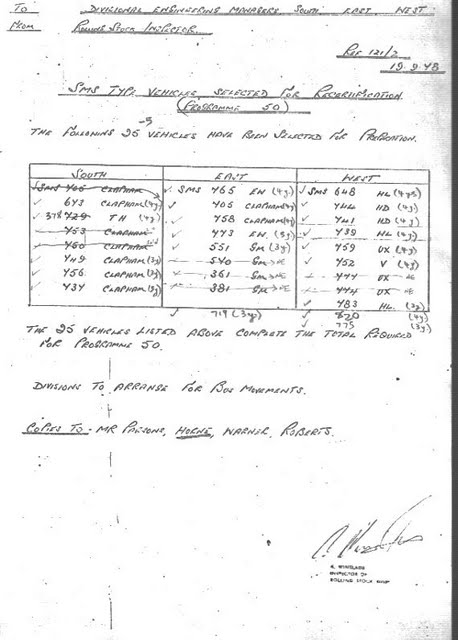 To DIVISIONAL ENGINEERING MANAGERS SOUTH. EAST. WEST.
From ROLLING STOCK INSPECTOR.
REF 121/2
19.9.78
SMS TYPE VEHICLES SELECTED FOR RECERTIFICATION
(PROGRAMME 50)
THE FOLLOWING 25 VEHICLES HAVE BEEN SELECTED FOR PREPARATION.
SOUTH EAST WEST
SMS 406 CLAPHAM ✓ SMS 465 EN (4y) ✓ SMS 648 HL (4ys)
✓ 643 CLAPHAM (4y) ✓ 405 CLAPHAM (4y) ✓ 444 HD (4y)
✓ 378 729 TH (4y) ✓ 458 CLAPHAM (4y) ✓ 441 HD (4y)
453 CLAPHAM ✓ 473 EN. (3y) ✓ 439 HL (4y)
460 CLAPHAM ✓ 551 SM (3y) ✓ 459 UX (4y)
✓ 449 CLAPHAM (3y) 540 SM ✓ 452 V (4y)
✓ 456 CLAPHAM (3y) 361 SM 444 UX
✓ 434 CLAPHAM (3y) 381 SM 442 UX
✓ 483 HL (3y)
✓ 719 (3y) ✓ 820 (4y)
✓ 775 (3y)
THE 25 VEHICLES LISTED ABOVE COMPLETE THE TOTAL REQUIRED
FOR PROGRAMME 50.
DIVISIONS TO ARRANGE FOR BUS MOVEMENTS.
COPIES TO - MR PARSONS, HORNE, WARNER, ROBERTS.
INSPECTOR OF
ROLLING STOCK